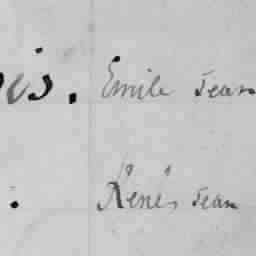 is. Emile Jean
. René, Jean